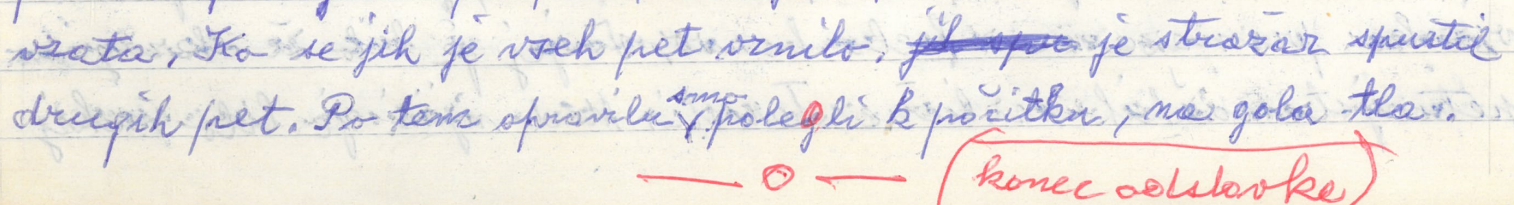 vrata. Ko se jih je vseh pet vrnilo, je stražar spustil
drugih pet. Po tem opravilu smo polegli k počitku, na gola tla.
— o — (konec odstavka)